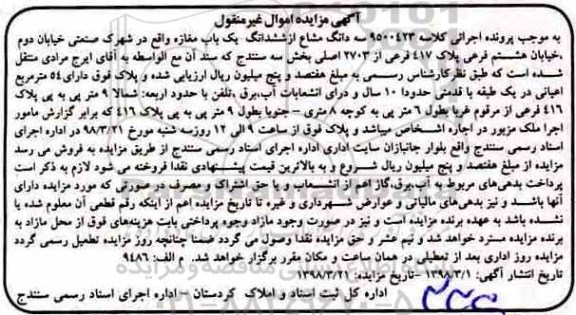 آگهی مزایده اموال غیرمنقول
به موجب پرونده اجرائی کلاسه ۹۵۰۰۴۲۳ سه دانگ مشاع ازششدانگ یک باب مغازه واقع در شهرک صنعتی خیابان دوم
،خیابان هشتم فرعی پلاک ۴۱۷ فرعی از ۲۷۰۳ اصلی بخش سه سنندج که سند آن مع الواسطه به آقای ایرج مرادی منتقل
شده است که طبق نظرکارشناس رسمی به مبلغ هفتصد و پنج میلیون ریال ارزیابی شده و پلاک فوق دارای۵۴ مترمربع
اعیانی در یک طبقه با قدمتی حدودا ۱۰ سال و درای انشعابات آب،برق ،تلفن با حدود اربعه: شمالا ۹ متر پی به پی پلاک
۴۱۶ فرعی از مرقوم غربا بطول ۶ متر پی به کوچه ۸متری – جنوبا بطول ۹ متر پی به پی پلاک ۴۱۶ که برابر گزارش مامور
اجرا ملک مزبور در اجاره اشخاص میباشد و پلاک فوق از ساعت ۹ الی ۱۲ روزسه شنبه مورخ ۹۸/۳/۲۱ در اداره اجرای
اسناد رسمی سنندج واقع بلوار جانبازان سایت اداری اداره اجرای اسناد رسمی سنندج از طریق مزایده به فروش می رسد
مزایده از مبلغ هفتصد و پنج میلیون ریال شروع و به بالاترین قیمت پیشنهادی نقدا فروخته می شود لازم به ذکر است
پرداخت بدهی های مربوط به آب،برق،گاز اعم از انشعاب و یا حق اشتراک و مصرف در صورتی که مورد مزایده دارای
آنها باشد و نیز بدهی های مالیاتی و عوارض شهرداری و غیره تا تاریخ مزایده اعم از اینکه رقم قطعی آن معلوم شده یا
نشده باشد به عهده برنده مزایده است و نیز در صورت وجود مازاد وجوه پرداختی بابت هزینه های فوق از محل مازاد به
برنده مزایده مسترد خواهد شد و نیم عشر و حق مزایده نقدا وصول می گردد ضمنا چنانچه روز مزایده تعطیل رسمی گردد
مزایده روز اداری بعد از تعطیلی در همان ساعت و مکان مقرر برگزار خواهد شد. م الف: ۹۴۸۶
تاریخ انتشار آگهی: ۱۳۹۸/۳/۱ –تاریخ مزایده: ۱۳۹۸/۳/۲۱
اداره کل ثبت اسناد و املاک کردستان – اداره اجرای اسناد رسمی سنندج